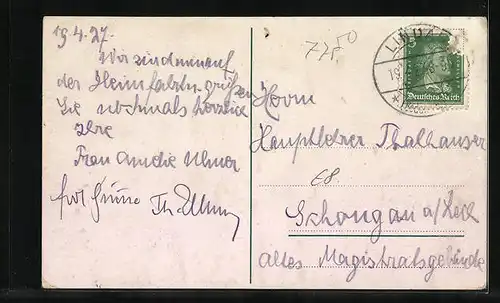 19.4.27.
Wir sind nun auf
der Heimfahrt grüßen
Sie nochmals herzlich
Ihre
Frau Amelie Ulmer
Th. Ulmer
77 50
LINDAU
5
Deutsches Reich
Herrn
Hauptlehrer Thalhauser
68
Schongau a/Lech
altes Magistratsgebäude